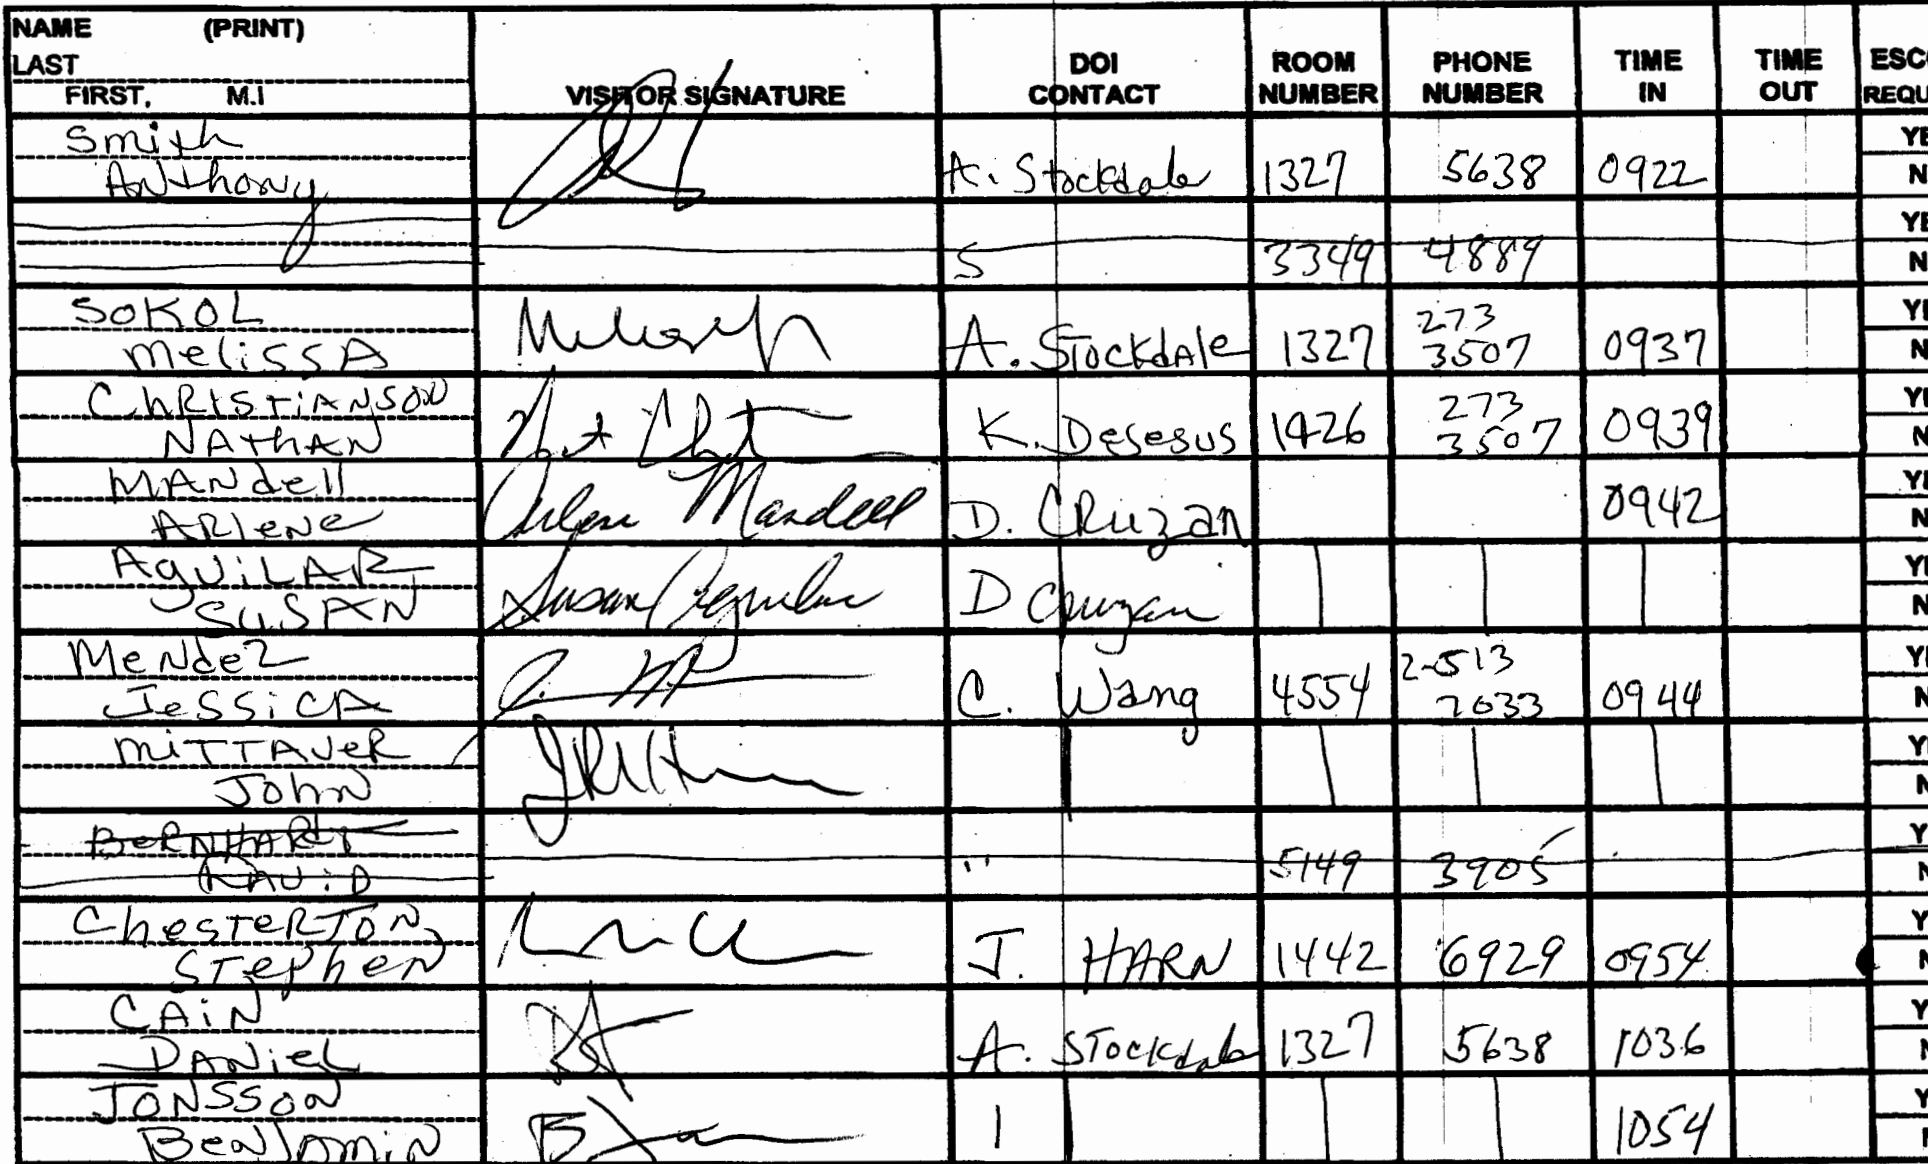 NAME (PRINT)
LAST
FIRST, M.I
VISITOR SIGNATURE
DOI CONTACT
ROOM NUMBER
PHONE NUMBER
TIME IN
TIME OUT
Smith
Anthony
A. Stockdale 1327 5638 0922
S 3349 4889
SOKOL
Melissa
A. Stockdale 1327 273 3507 0937
Christianson
Nathan
K. Desesus 1426 273 3507 0939
Mandell
Arlene
Arlene Mandell
D. Cruzan 0942
Aguilar
Susan
Susan Aguilar
D Cruzan
Mendez
Jessica
C. Wang 4554 2-513 7033 0944
Mittauer
John
Bernhardt
David
" 5149 3905
Chesterton,
Stephen
J. HARN 1442 6929 0954
Cain
Daniel
A. Stockdale 1327 5638 1036
Jonsson
Benjamin
1054